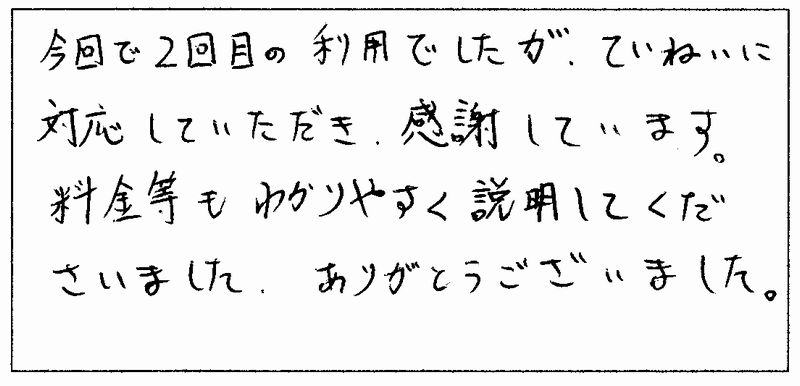 今回で2回目の利用でしたが、ていねいに
対応していただき、感謝しています。
料金等もわかりやすく説明してくだ
さいました。ありがとうございました。